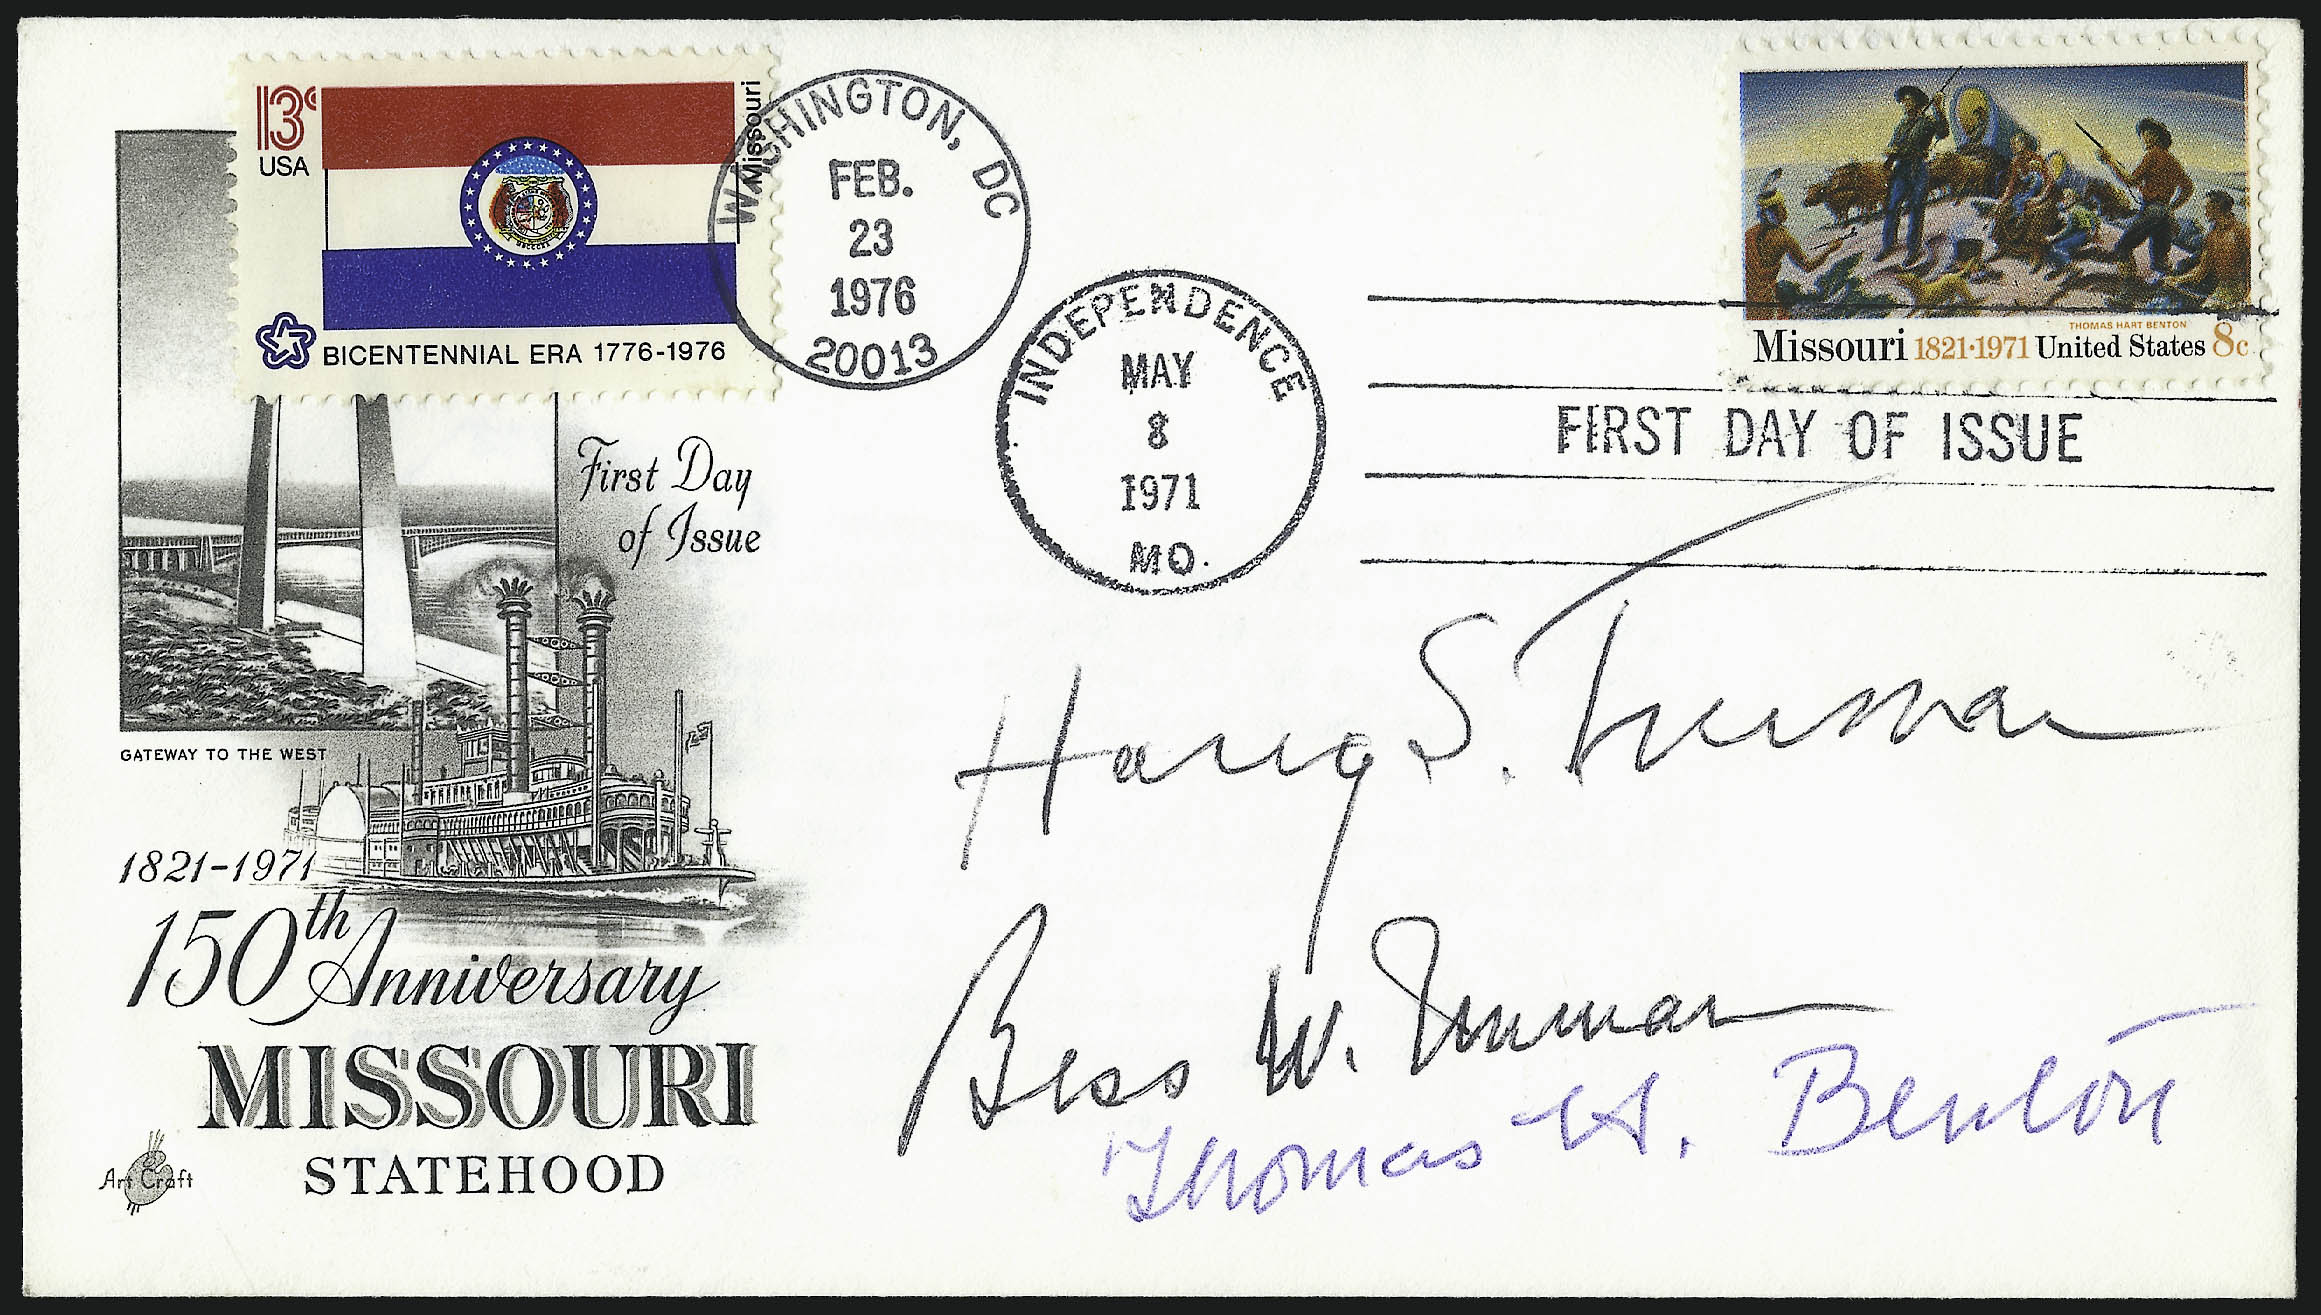 13c
USA
Missouri
BICENTENNIAL ERA 1776-1976
WASHINGTON, DC
FEB.
23
1976
20013
INDEPENDENCE
MAY
8
1971
MO.
THOMAS HART BENTON
Missouri 1821·1971 United States 8c
FIRST DAY OF ISSUE
First Day
of Issue
GATEWAY TO THE WEST
1821-1971
150th Anniversary
MISSOURI
STATEHOOD
Art Craft
Harry S. Truman
Bess W. Truman
Thomas H. Benton